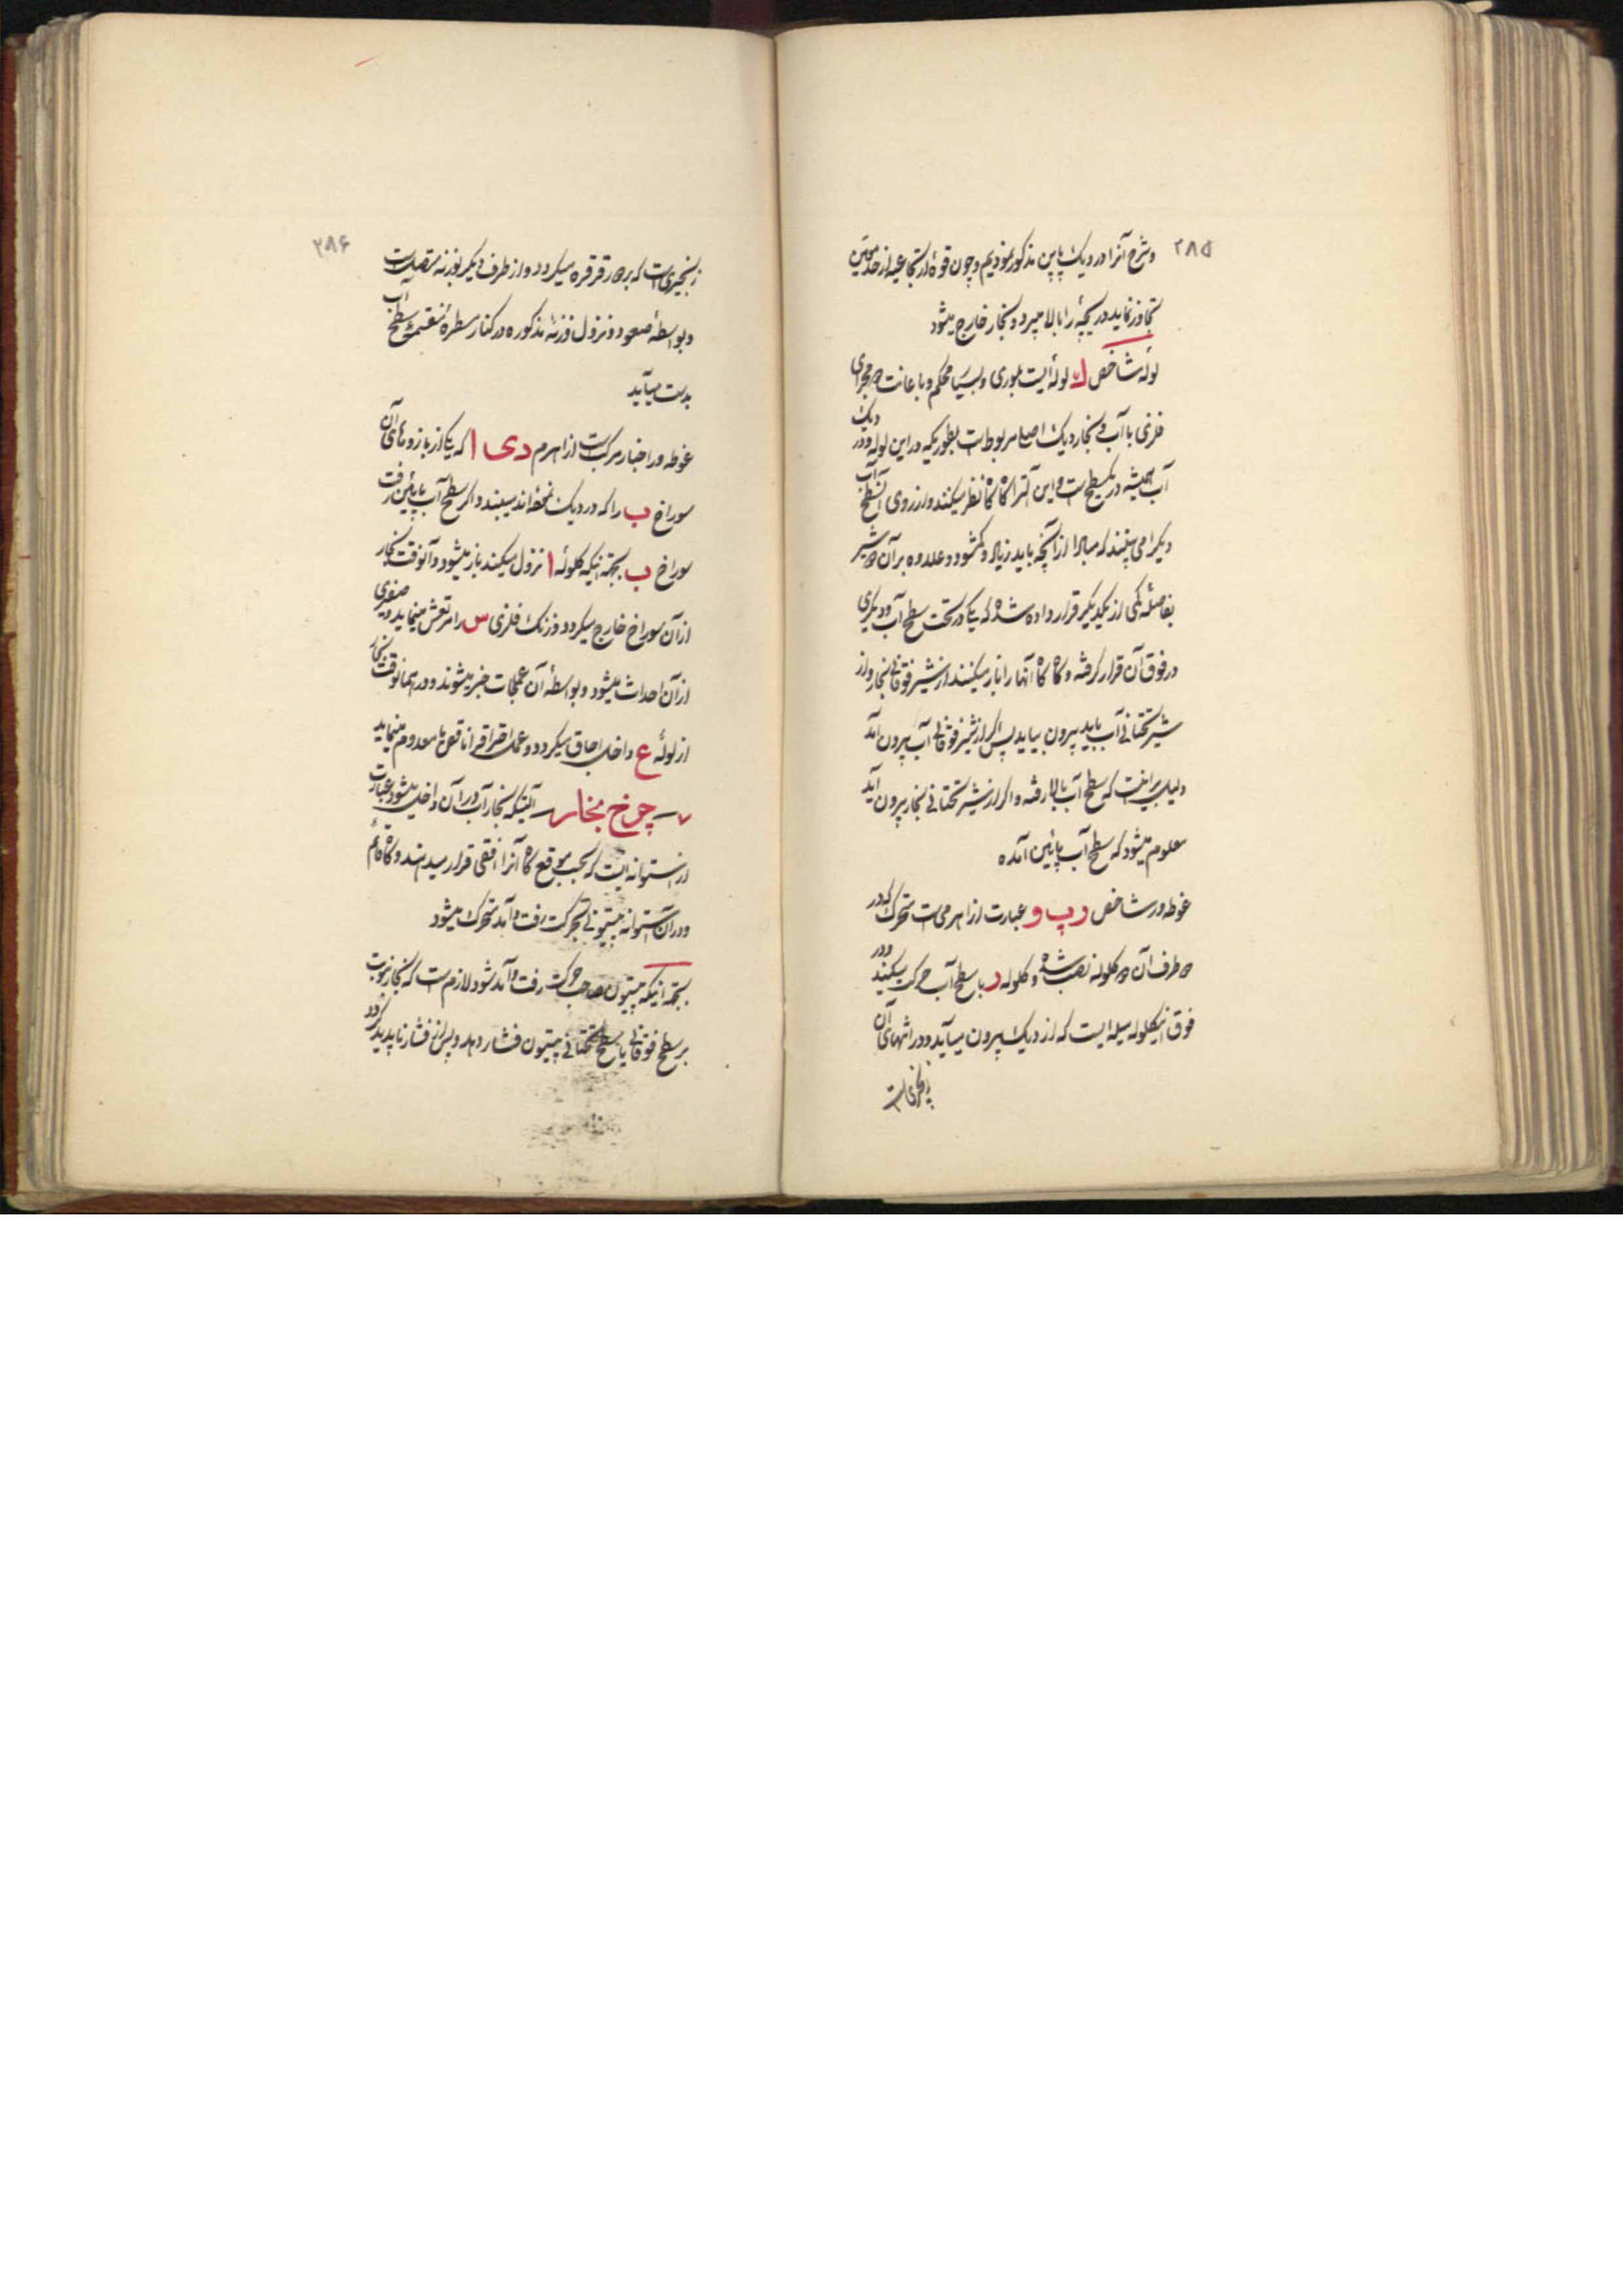 ۲۸۵
وشرح آنرا در دیک پاپن مذکور نمودیم و چون قوهٔ ارتجاعیه از حد معین
تجاوز نماید دریچه را بالا میبرد و بخار خارج میشود
لولهٔ شاخص لوله‌ایست بلوری و بسیا محکم و باعانت دو مجرای
فلزی با آب و بخار دیک اصلی مربوطست بطوریکه در این لوله و در دیک
آب همیشه در یکسطح است و این آلترا گاه گاه نظر میکنند و از روی آن سطح آب
دیکرا می‌بینند که مبادا از آنچه باید زیاد و کم شود و علاوه بر آن دو شیر
بفاصلهٔ کمی از یکدیگر قرار داده شده که یکی در تحت سطح آب و دیگری
در فوق آن قرار گرفته و گاه گاه آنها را باز میکنند از شیر فوقانی بخار و از
شیر تحتانی آب باید بیرون بیاید پس اگر از شیر فوقانی آب بیرون آمد
دلیل بر اینست که سطح آب بالا رفته و اگر از شیر تحتانی بخار بیرون آید
معلوم میشود که سطح آب پائین آمده
غوطه ور شاخص د پ و عبارت از اهرمی است متحرک که در
دو طرف آن دو گلوله نصب شده و گلوله د با سطح آب حرکت میکند و در
فوق اینگلوله میله‌ایست که از دیک بیرون میآید و در انتهای آن
زنجیری است
۲۸۶
زنجیری است که بر دور قرقره میکردد و از طرف دیگر بوزنه متصل است
و بواسطهٔ صعود و نزول وزنهٔ مذکوره در کنار سطرهٔ منقسمه سطح آب
بدست میآید
غوطه ور اخبار مرکب است از اهرم د ی ا که یکی از بازوهای آن
سوراخ ب را که در دیک است می‌بندد و اگر سطح آب پائین رفت
سوراخ ب بجهة اینکه گلولهٔ ا نزول میکند باز میشود و آنوقت بخار
از آن سوراخ خارج میکردد و زنک فلزی س را مرتعش مینماید و صفیری
از آن احداث میشود و بواسطهٔ آن عملجات خبر میشوند و در همانوقت بخار
از لولهٔ ع داخل اجاق میکردد و عمل احتراق را ناقص یا معدوم مینماید
۷ چرخ بخار آلتیکه بخار آب در آن داخل میشود عبارت
از استوانه‌ایست که بحسب موقع گاه آنرا افقی قرار میدهند و گاه قائم
و در آن استوانه پیستونی بحرکت رفت و آمد متحرک میشود
بجهة اینکه پیستون صاحب حرکت رفت و آمد شود لازم است که بخار بنوبت
بر سطح فوقانی یا سطح تحتانی پیستون فشار دهد و پس از فشار ناپدید گردد